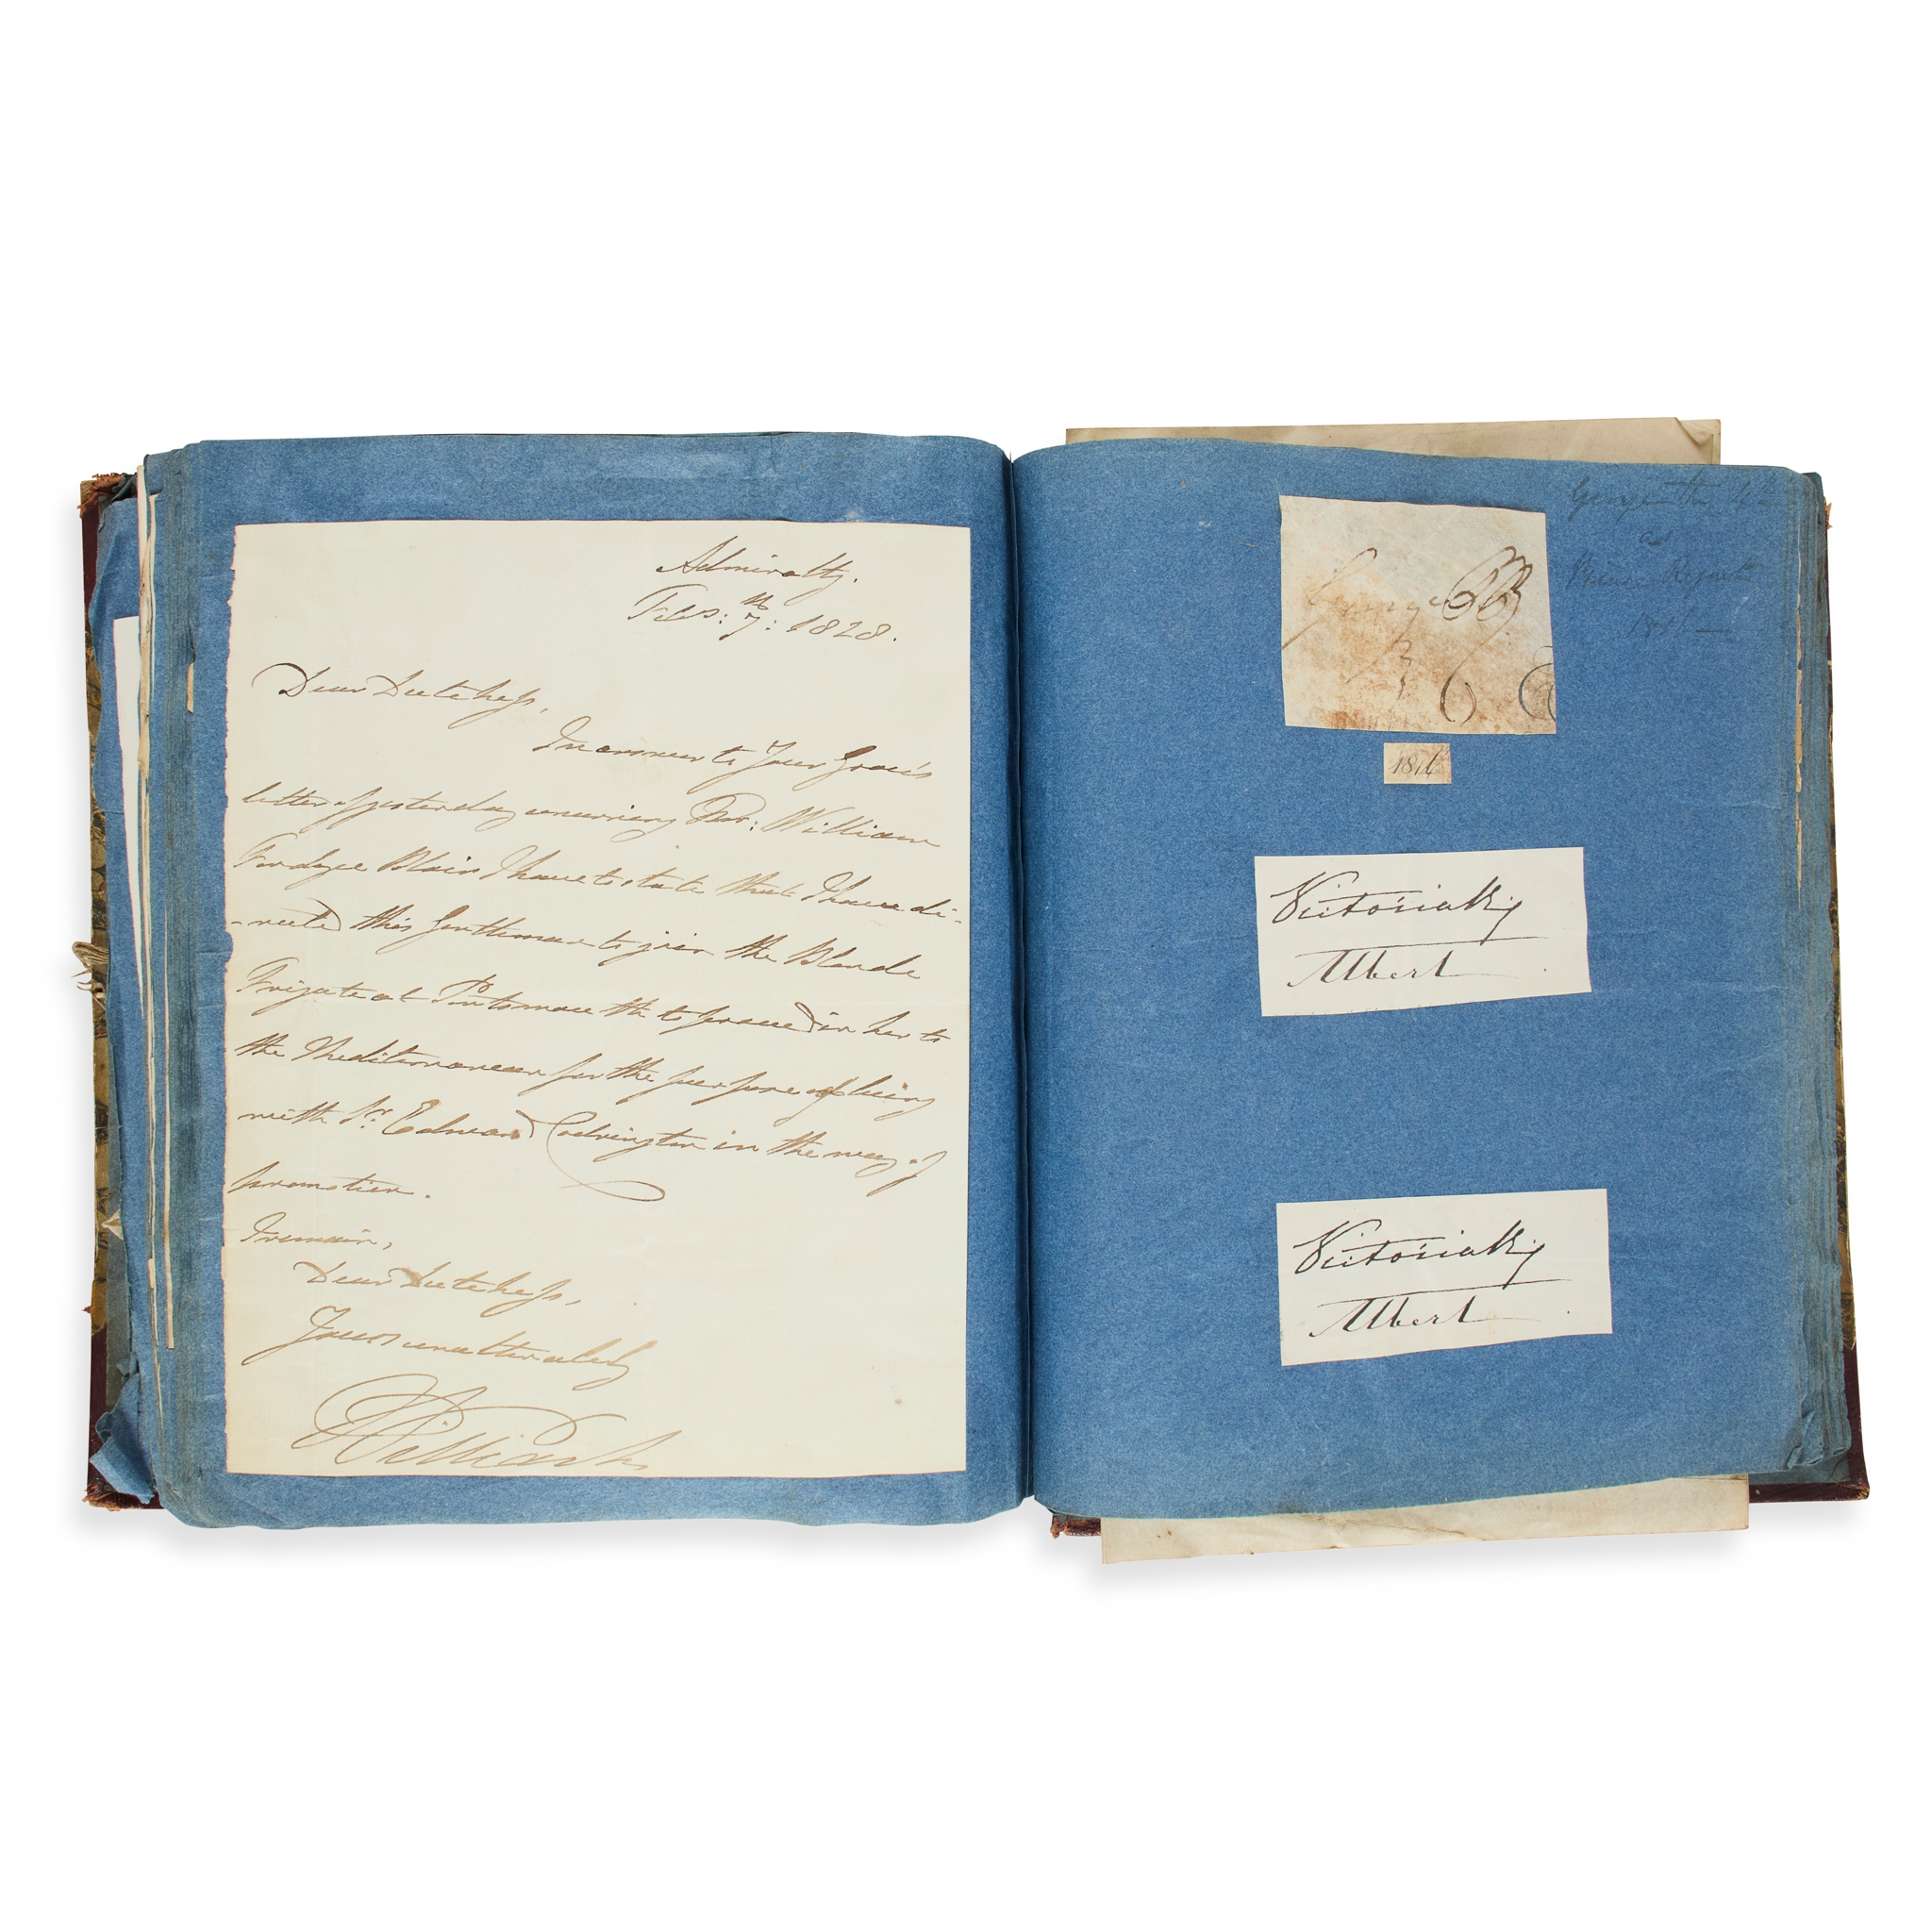 Admiralty.
Feb: 7th: 1828.
Dear Dutchess,
In answer to Your Grace's
letter of yesterday concerning Mr: William
Fordyce Blair I have to state that I have di-
-rected this Gentleman to join the Blonde
Frigate at Portsmouth to proceed in her to
the Mediterranean for the purpose of being
with Sr. Edward Codrington in the way of
promotion.
I remain,
Dear Dutchess,
Yours unalterably
William
George the 4th
as
Prince Regent
1816
George PR
1816
Victoria R
Albert
Victoria R
Albert